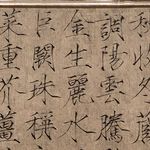 秋收冬藏
調陽雲騰
金生麗水
巨闕珠稱
菜重芥薑